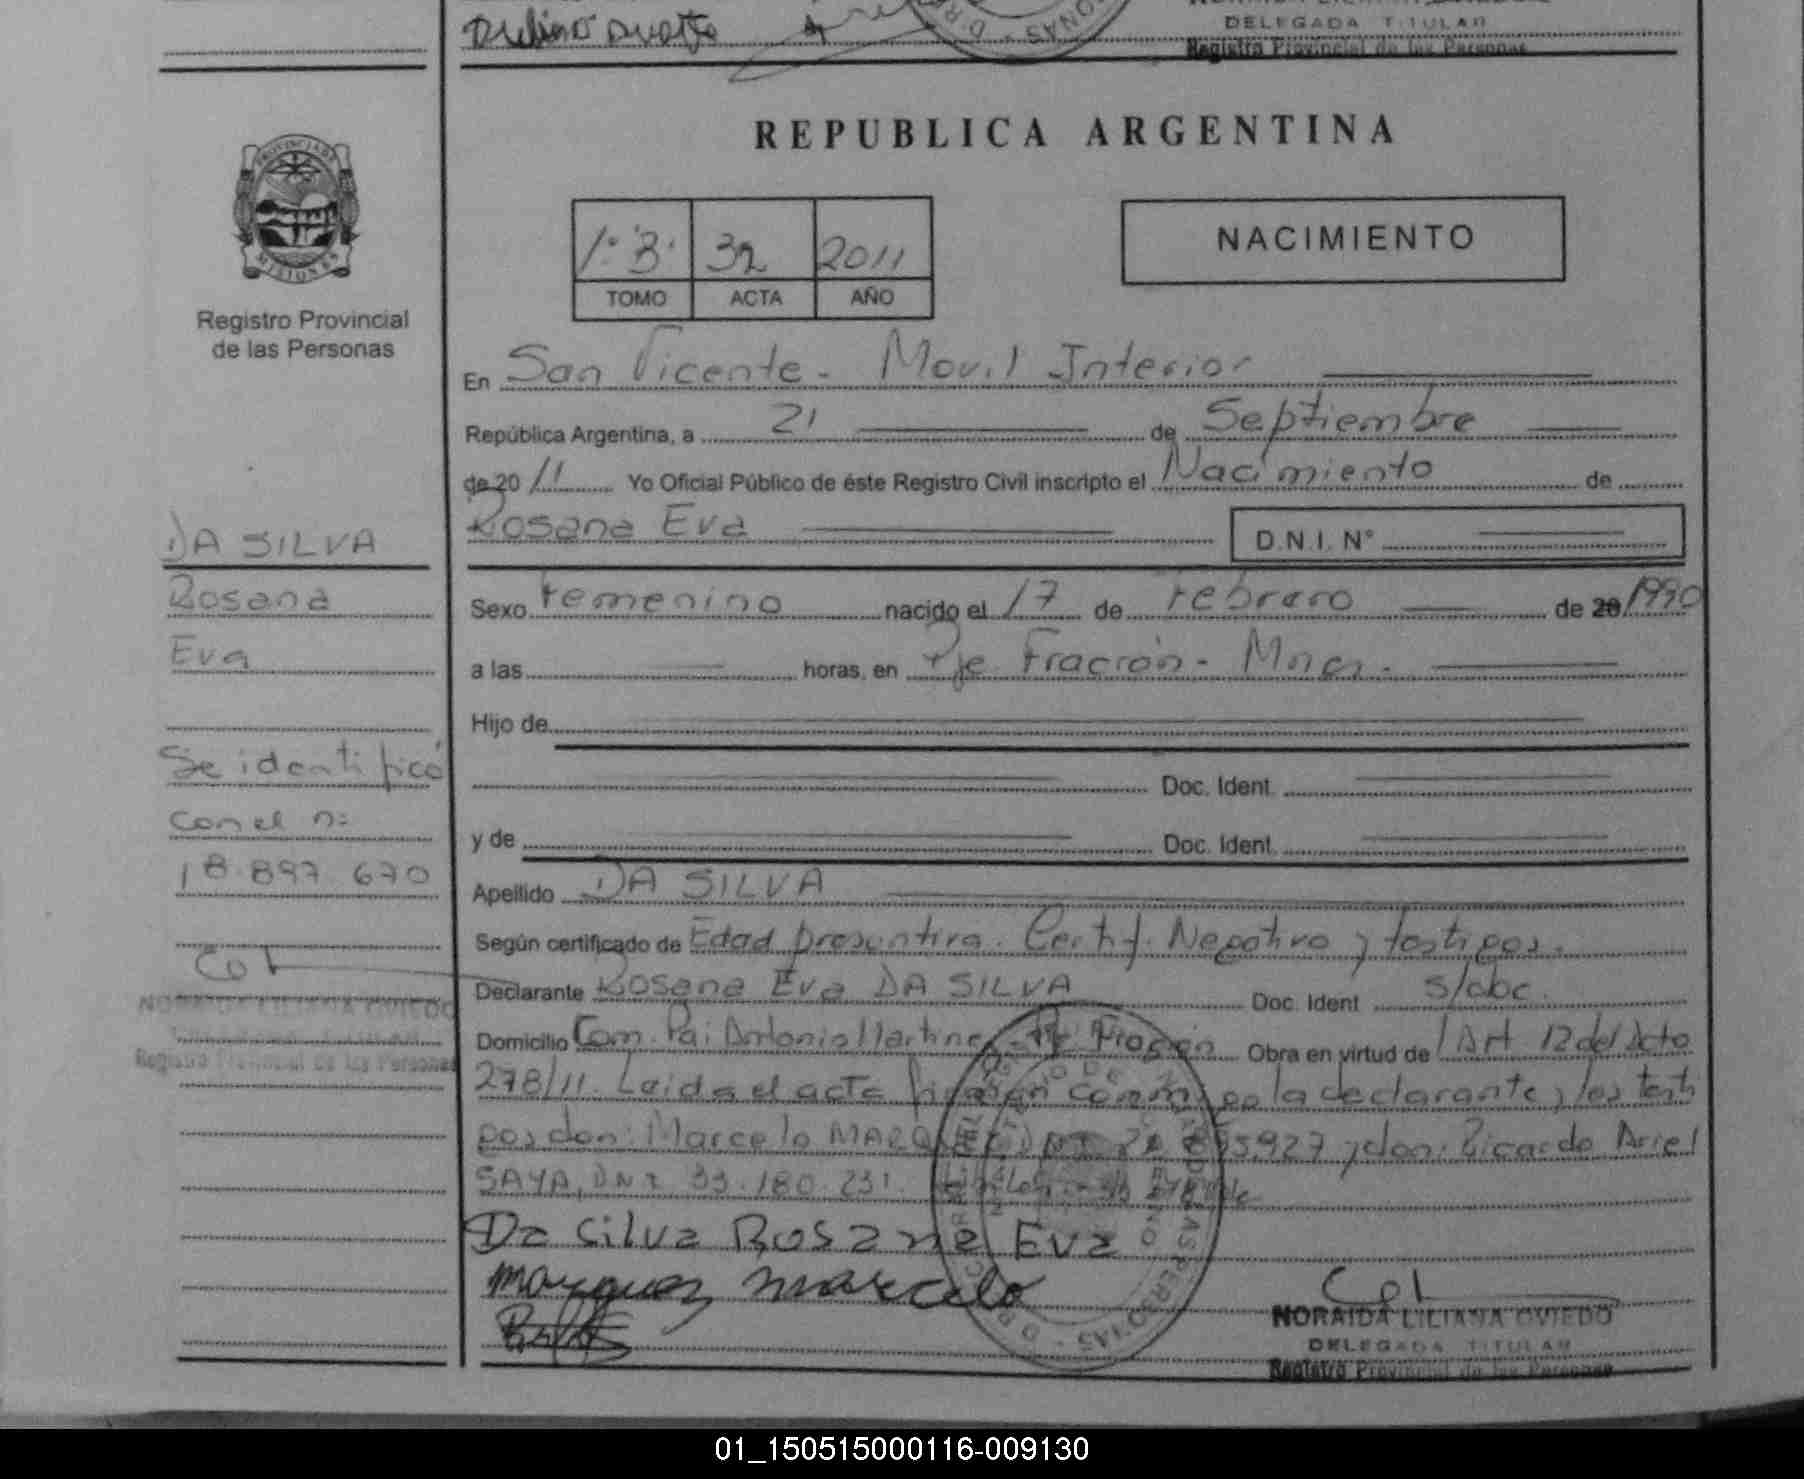 Delino Duarte
DELEGADA TITULAR
Registro Provincial de las Personas
REPUBLICA ARGENTINA
PROVINCIA DE
MISIONES
Registro Provincial
de las Personas
1º "B" 32 2011
TOMO ACTA AÑO
NACIMIENTO
En San Vicente - Movil Interior
República Argentina, a 21 de Septiembre
de 20 11 Yo Oficial Público de éste Registro Civil inscripto el Nacimiento de
Rosana Eva D.N.I. N°
DA SILVA
Rosana
Eva
Se identificó
con el nº
18.897.670
NORAIDA LILIANA OVIEDO
Registro Provincial de las Personas
Sexo Femenino nacido el 17 de Febrero de 20 1990
a las horas, en Pje Fracrán - Mnes.
Hijo de
Doc. Ident.
y de Doc. Ident.
Apellido DA SILVA
Según certificado de Edad presuntiva. Certif. Negativo y testigos.
Declarante Rosana Eva DA SILVA Doc. Ident s/doc.
Domicilio Com. Pai Antonio Martinez - Pje Fracrán Obra en virtud del Art 12 del Dcto
278/11. Leida el acta firman conmigo la declarante y los testi
gos don: Marcelo MARQUEZ, DNI y don: Ricardo Ariel
SAYA, DNI 33.180.231.
Da Silva Rosana Eva
Marquez Marcelo
NORAIDA LILIANA OVIEDO
DELEGADA TITULAR
Registro Provincial de las Personas
01_150515000116-009130